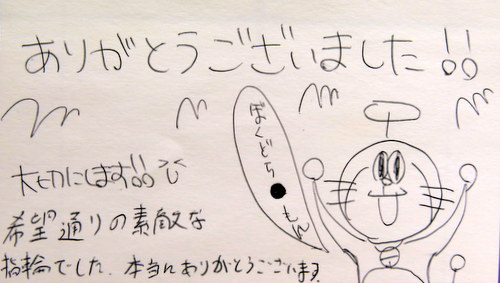 ありがとうございました!!
ぼくどち●もん
大切にします!!
希望通りの素敵な
指輪でした。本当にありがとうございます。